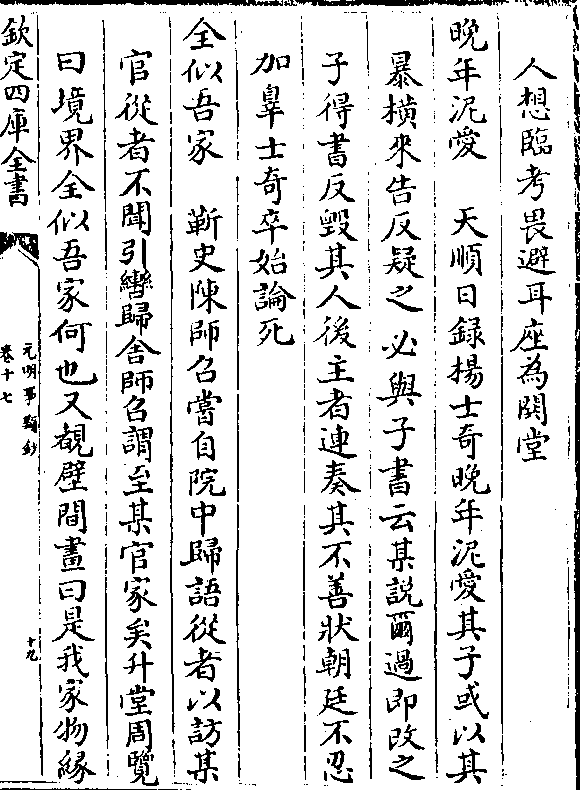 人想臨考畏避耳座為闋堂
晚年泥愛　天順日録楊士奇晚年泥愛其子或以其
暴横來告反疑之必與子書云某説爾過即改之
子得書反毀其人後主者連奏其不善狀朝廷不忍
加辠士奇卒始論死
全似吾家　蘄史陳師召嘗自院中歸語從者以訪某
官從者不聞引轡歸舎師召謂至某官家矣升堂周覽
曰境界全似吾家何也又覩壁間畫曰是我家物緣
欽定四庫全書
元明事類鈔
卷十七
十九